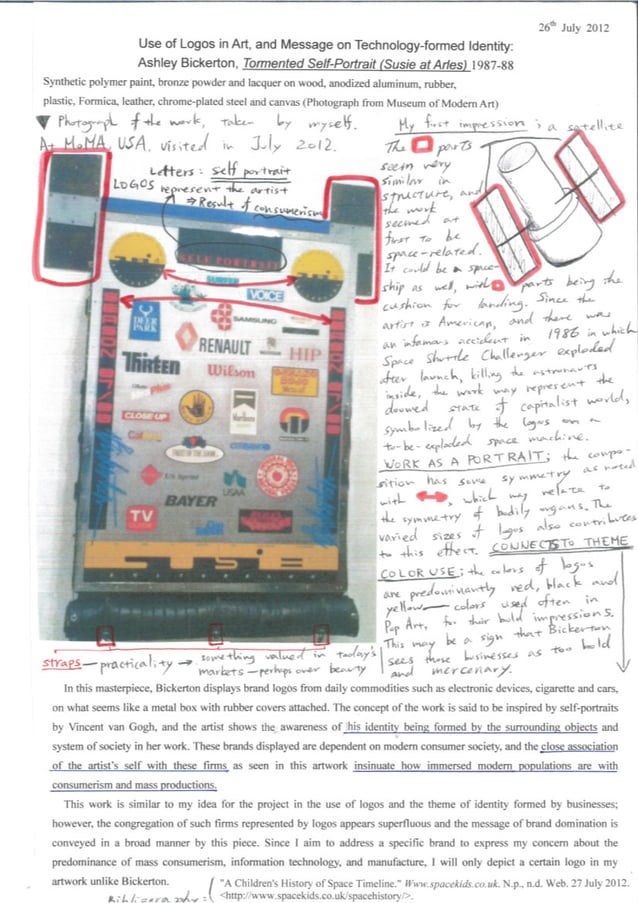 26th July 2012
Use of Logos in Art, and Message on Technology-formed Identity:
Ashley Bickerton, Tormented Self-Portrait (Susie at Arles) 1987-88
Synthetic polymer paint, bronze powder and lacquer on wood, anodized aluminum, rubber,
plastic, Formica, leather, chrome-plated steel and canvas (Photograph from Museum of Modern Art)
▼ Photograph of the work, taken by myself.
At MoMA, USA. visited in July 2012.
Letters: self portrait
LOGOS represent the artist
⇒ Result of consumerism
SELF PORTRAIT
SURFER
VOICE
DEER
PARK
SAMSUNG
RENAULT
Thirteen
HIP
Wilson
CLOSE-UP
Marlboro
CITIBANK
US Sprint
USAA
BAYER
TV
GUIDE
SUSIE
straps — practicality → something valued in today's
markets — perhaps over beauty
My first impression; a satellite
The parts
seem very
similar in
structure, and
the work
seemed at
first to be
space-related.
It could be a space-
ship as well, with parts being the
cushion for landing. Since the
artist is American, and there was
an infamous accident in 1986 in which
Space Shuttle Challenger exploded
after launch, killing the astronauts
inside, the work may represent the
doomed state of capitalist world,
symbolized by the logos on a
to-be-exploded space machine.
WORK AS A PORTRAIT; the compo-
sition has some symmetry as noted
with ↔, which may relate to
the symmetry of bodily organs. The
varied sizes of logos also contributes
to this effect. CONNECTS TO THEME
COLOR USE; the colors of logos
are predominantly red, black and
yellow — colors used often in
Pop Art, for their bold impressions.
This may be a sign that Bickerton
sees those businesses as too bold
and mercenary.
In this masterpiece, Bickerton displays brand logos from daily commodities such as electronic devices, cigarette and cars,
on what seems like a metal box with rubber covers attached. The concept of the work is said to be inspired by self-portraits
by Vincent van Gogh, and the artist shows the awareness of his identity being formed by the surrounding objects and
system of society in her work. These brands displayed are dependent on modern consumer society, and the close association
of the artist's self with these firms, as seen in this artwork insinuate how immersed modern populations are with
consumerism and mass productions.
This work is similar to my idea for the project in the use of logos and the theme of identity formed by businesses;
however, the congregation of such firms represented by logos appears superfluous and the message of brand domination is
conveyed in a broad manner by this piece. Since I aim to address a specific brand to express my concern about the
predominance of mass consumerism, information technology, and manufacture, I will only depict a certain logo in my
artwork unlike Bickerton.
Bibliography:
"A Children's History of Space Timeline." Www.spacekids.co.uk. N.p., n.d. Web. 27 July 2012.
<http://www.spacekids.co.uk/spacehistory/>.